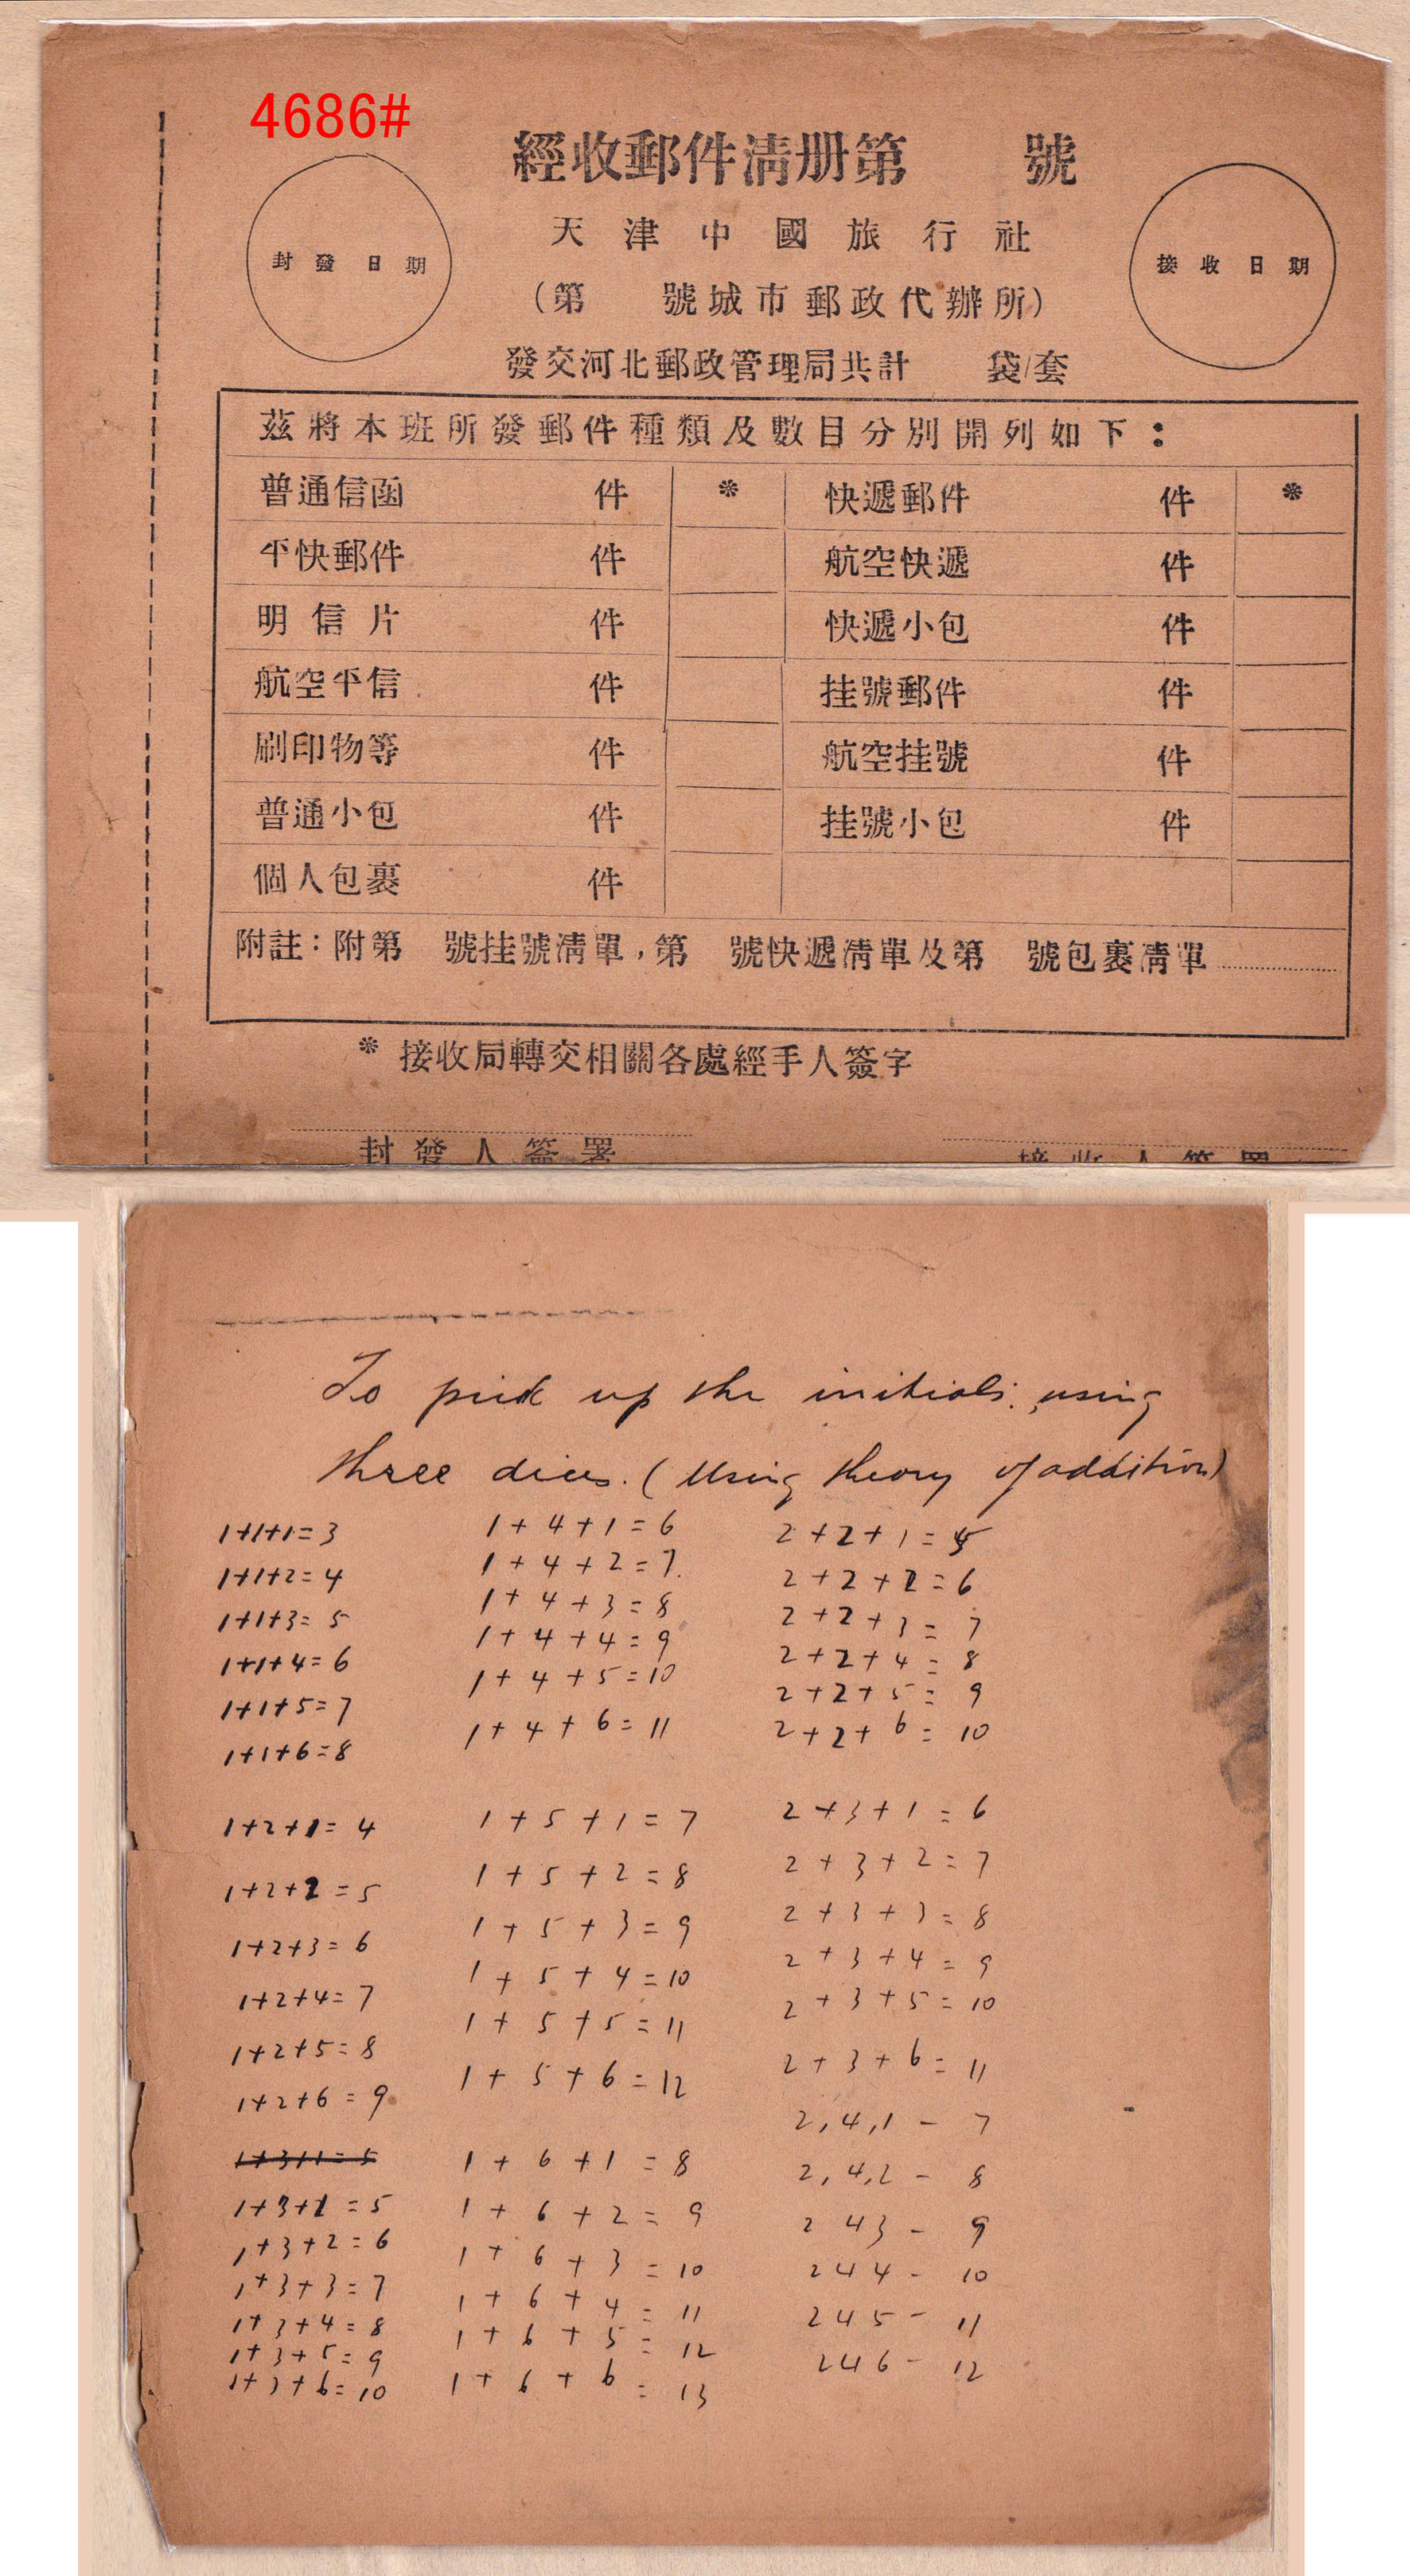 4686#
經收郵件清册第 號
天津中國旅行社
(第 號城市郵政代辦所)
發交河北郵政管理局共計 袋/套
封發日期
接收日期
茲將本班所發郵件種類及數目分別開列如下：
普通信函 件 * 快遞郵件 件 *
平快郵件 件 航空快遞 件
明信片 件 快遞小包 件
航空平信 件 挂號郵件 件
刷印物等 件 航空挂號 件
普通小包 件 挂號小包 件
個人包裹 件
附註：附第 號挂號清單，第 號快遞清單及第 號包裹清單
* 接收局轉交相關各處經手人簽字
封發人簽署
接收人簽署
To pick up the initials: using
three dices. (Using theory of addition)
1+1+1=3
1+1+2=4
1+1+3=5
1+1+4=6
1+1+5=7
1+1+6=8
1+2+1=4
1+2+2=5
1+2+3=6
1+2+4=7
1+2+5=8
1+2+6=9
1+3+1=5
1+3+1=5
1+3+2=6
1+3+3=7
1+3+4=8
1+3+5=9
1+3+6=10
1+4+1=6
1+4+2=7.
1+4+3=8
1+4+4=9
1+4+5=10
1+4+6=11
1+5+1=7
1+5+2=8
1+5+3=9
1+5+4=10
1+5+5=11
1+5+6=12
1+6+1=8
1+6+2=9
1+6+3=10
1+6+4=11
1+6+5=12
1+6+6=13
2+2+1=5
2+2+2=6
2+2+3=7
2+2+4=8
2+2+5=9
2+2+6=10
2+3+1=6
2+3+2=7
2+3+3=8
2+3+4=9
2+3+5=10
2+3+6=11
2,4,1-7
2,4,2-8
243-9
244-10
245-11
246-12